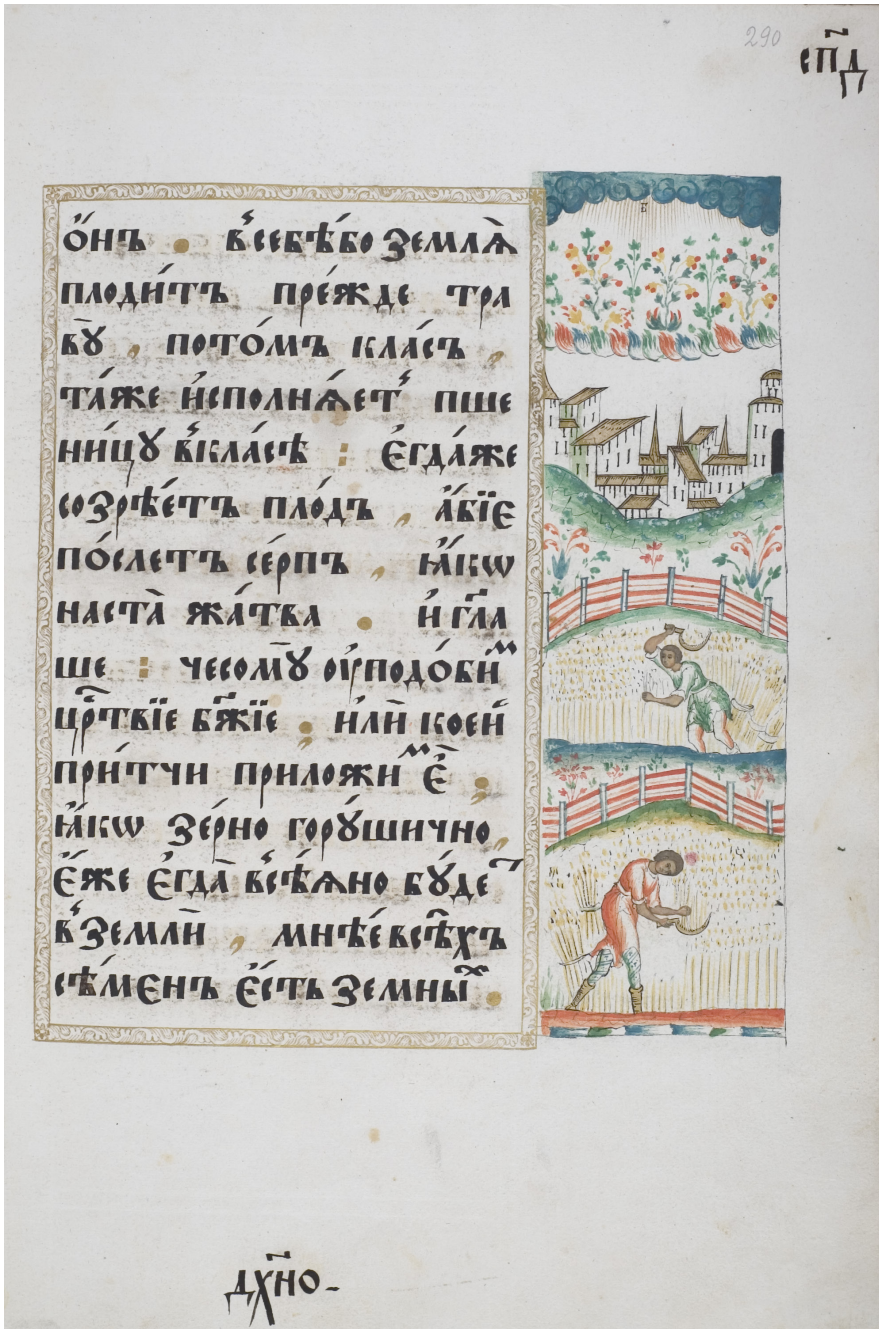 290
сп҃д
ѻ҆́нъ . в̾себѣ́бо землѧ̀
плоди́тъ пре́жде тра
вꙋ̀ , пото́мъ кла́съ ,
та́же и҆сполнѧ́етъ̾ пше
ни́цꙋ в̾кла́сѣ : є҆гда́же
созрѣ́етъ пло́дъ , а҆́бїє
по́слетъ се́рпъ , ꙗ҆́кѡ
наста̀ жа́тва . и҆ гл҃а
ше : чесомꙋ̀ ᲂу҆подо́биⷨ
црⷭ҇твїе бж҃їе . и҆лѝ кое́й
при́тчи приложиⷨ є҆̀ .
ꙗ҆́кѡ зе́рно горꙋ́шично ,
є҆́же є҆гда̀ в̾сѣ́ѧно бꙋ́деⷮ
в̾землѝ , мнѣ́евсѣ́хъ
сѣ́мєнъ є҆́сть земныⷯ .
дх҃но